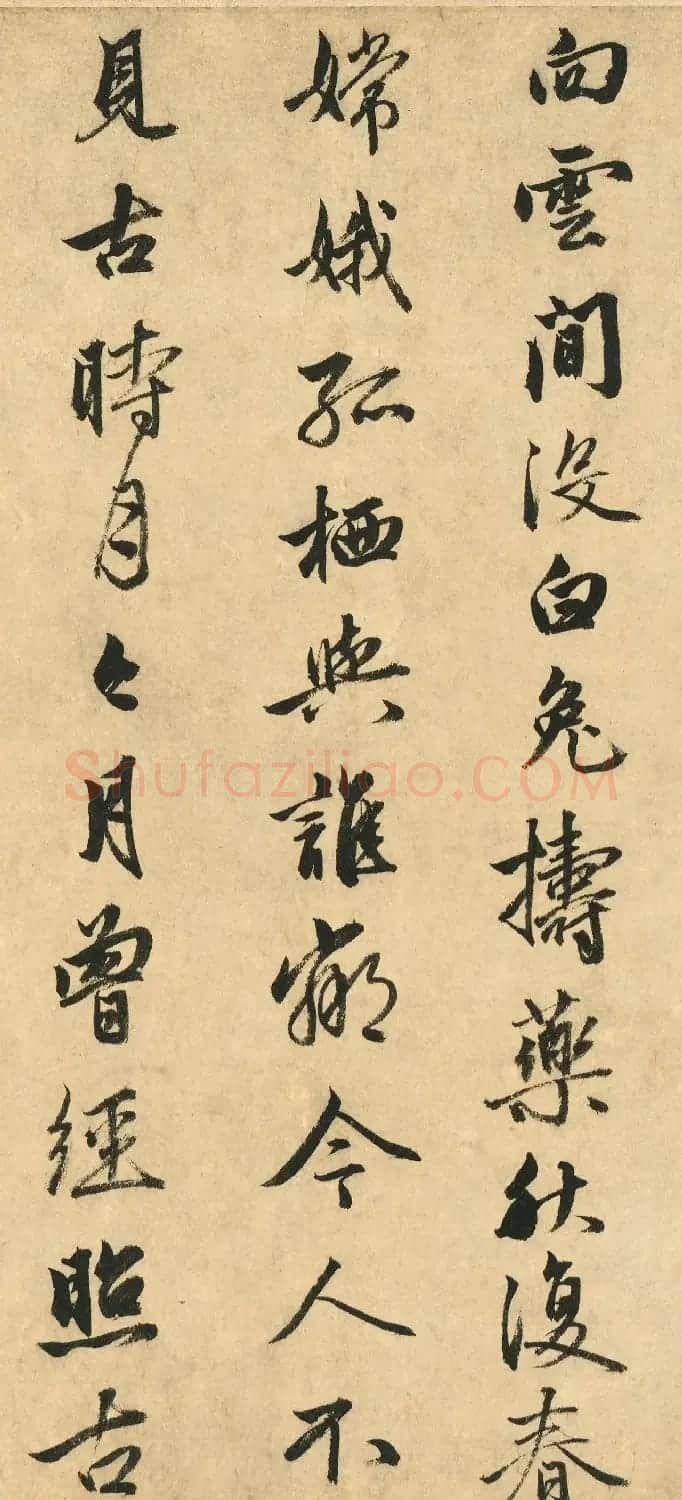 向雲間没白兔擣藥秋復春
嫦娥孤栖與誰鄰今人不
見古時月今月曾經照古
Shufaziliao.COM